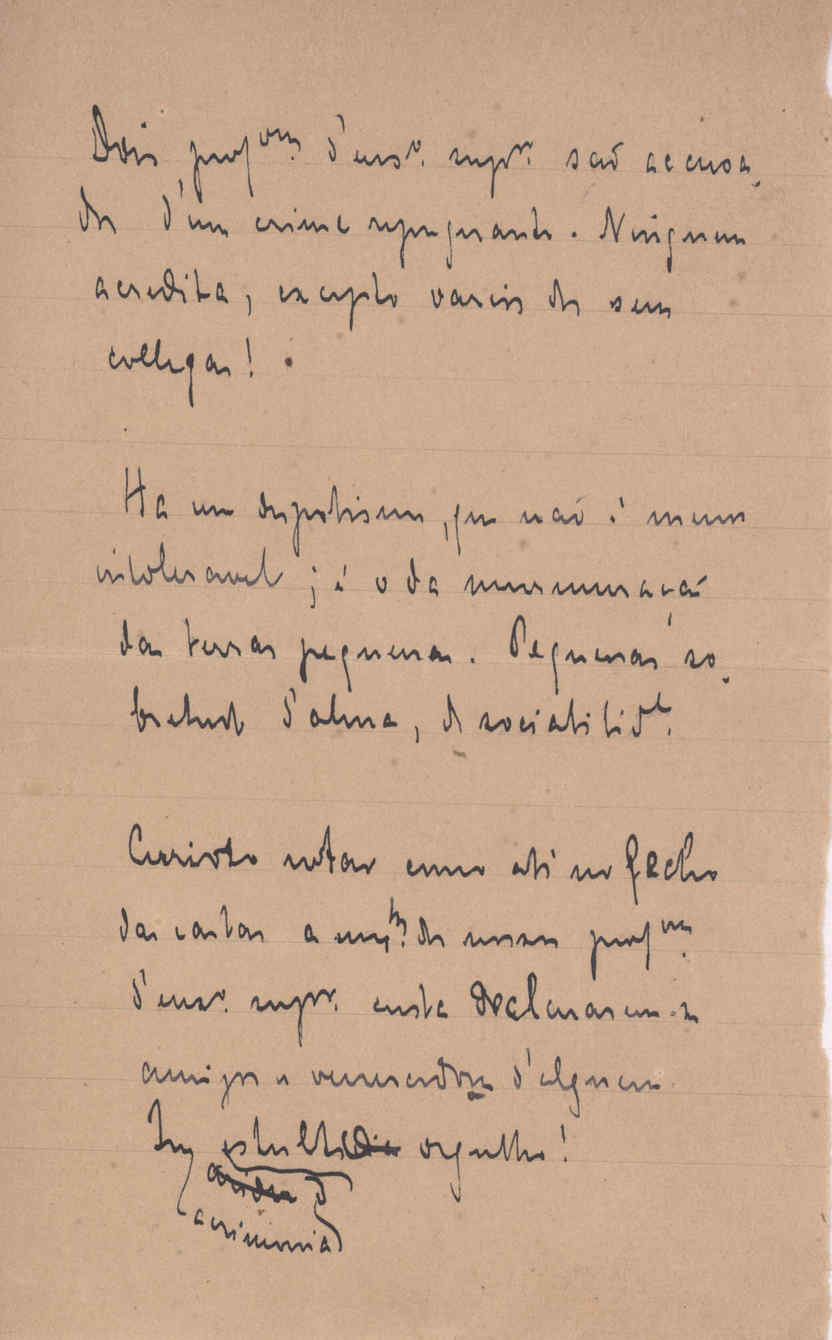 Dois prof.ores d'ens.o sup.or são accusa-
dos d'um crime repugnante. Ninguem
acredita, excepto varios dos seus
collegas!
Ha um despotismo, que não é menos
intoleravel; é o da murmuração
das terras pequenas. Pequenas so-
bretudo d'alma, de sociabilid.e
Curioso notar como até no fecho
das cartas a m.tos de nossos prof.ores
d'ens.o sup.or custa declararem-se
amigos e veneradores d'alguem
orgulho!
acrimonia